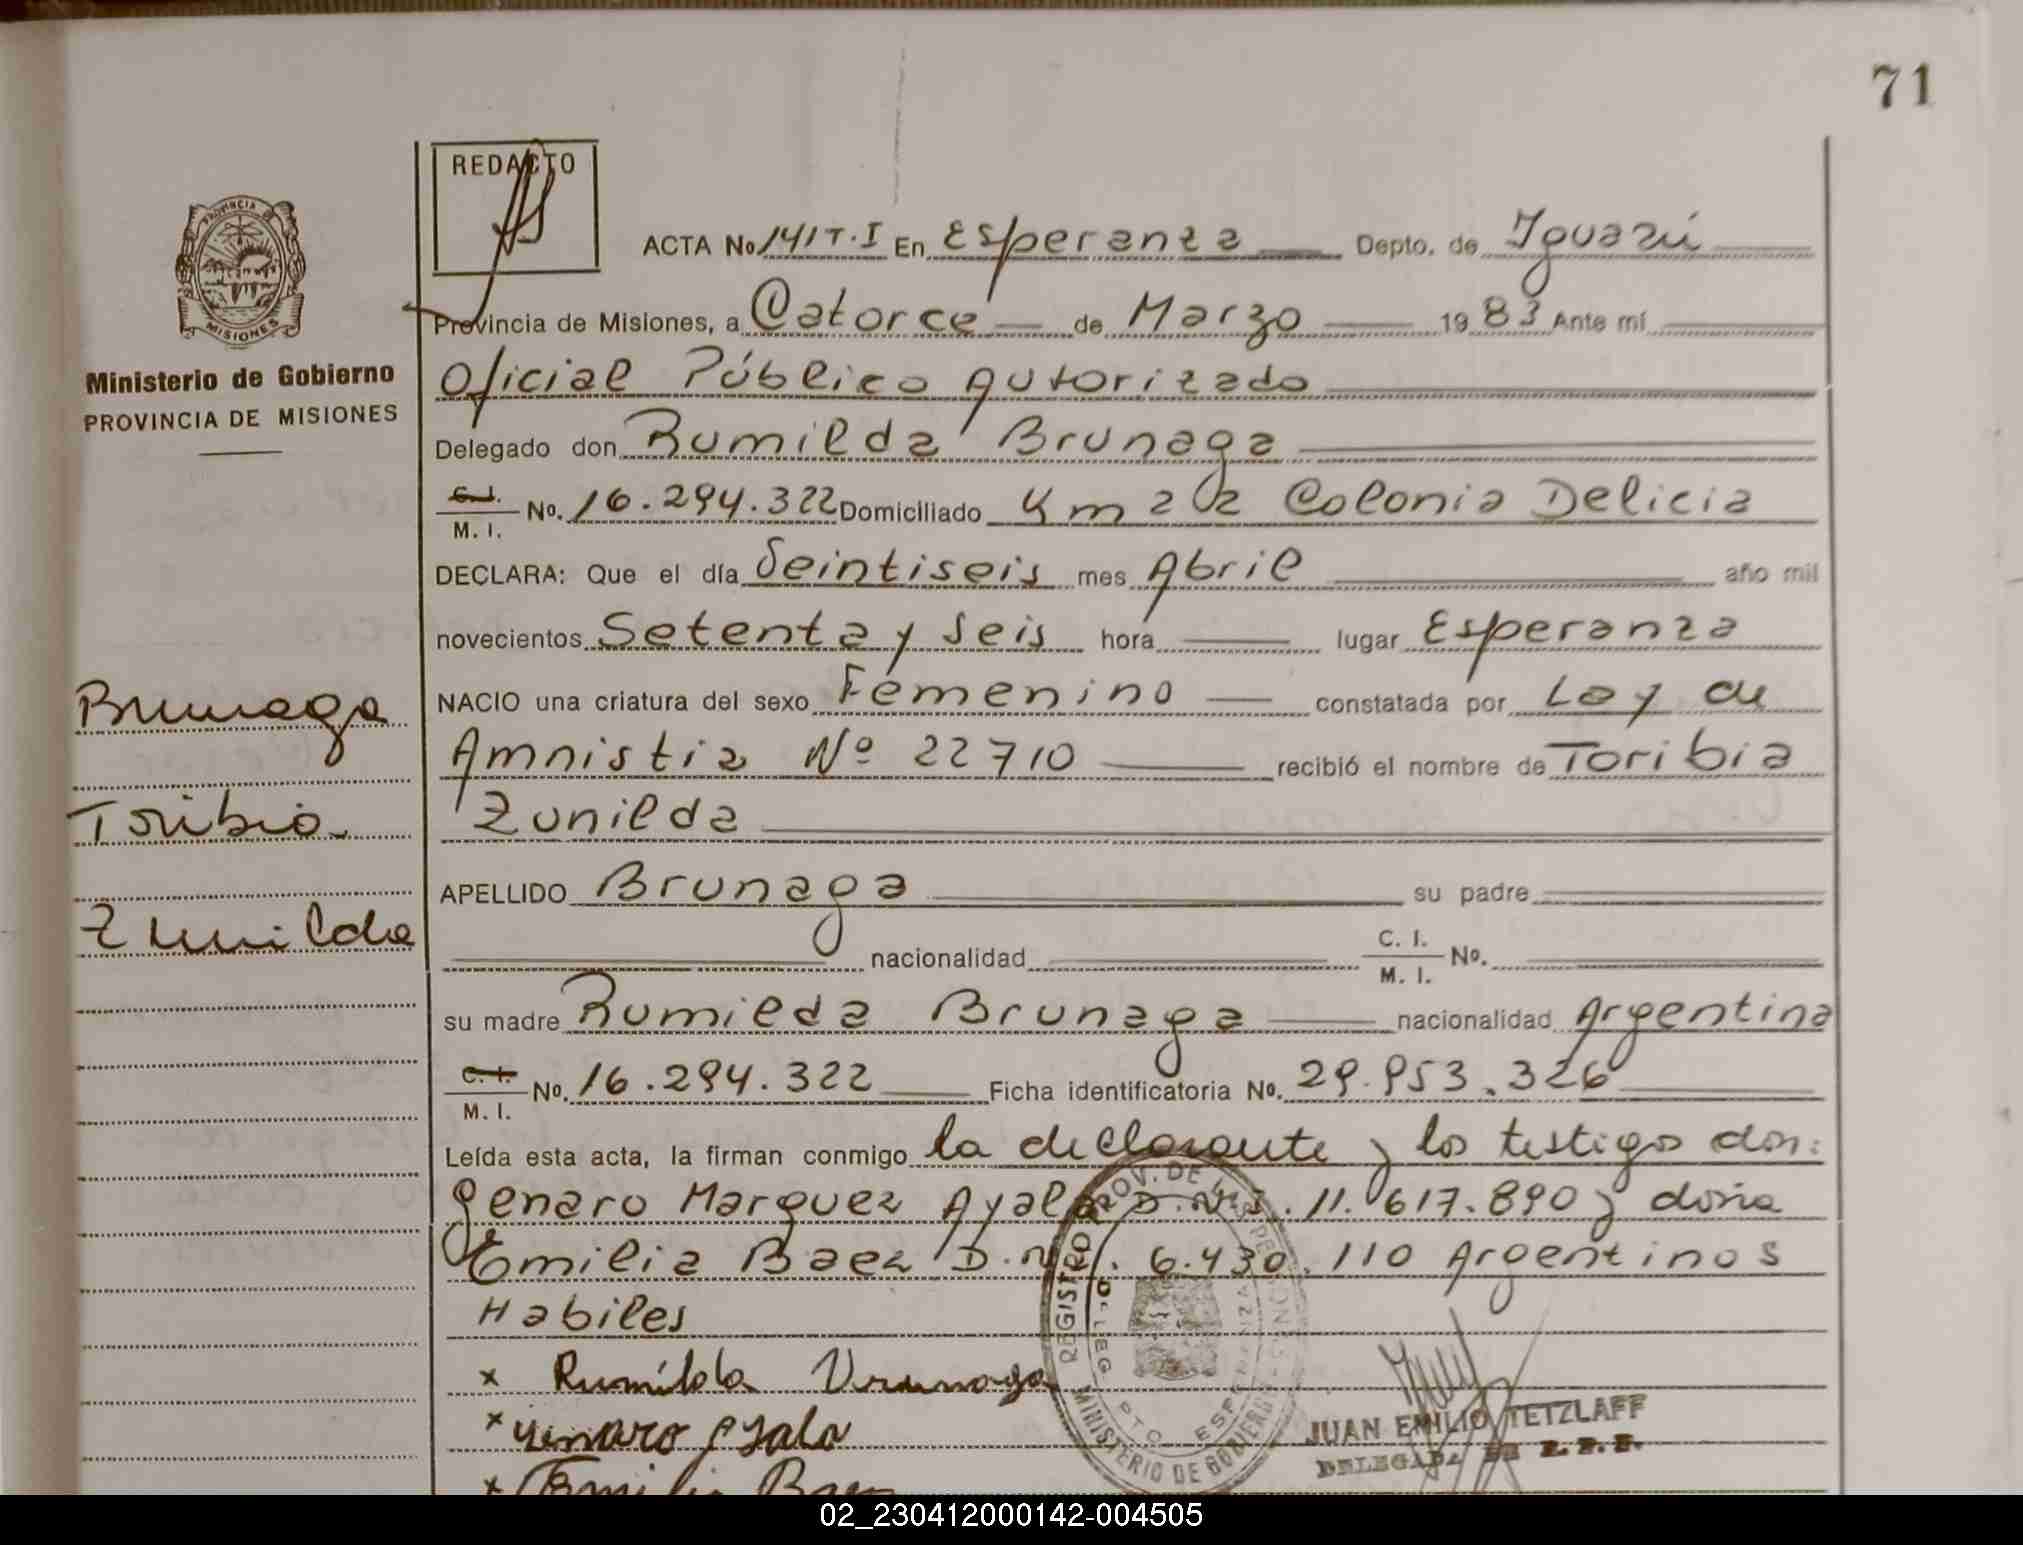 71
REDACTO
PROVINCIA DE
MISIONES
ACTA No 141 T.I En Esperanza Depto. de Iguazú
Provincia de Misiones, a Catorce de Marzo 1983 Ante mí
Ministerio de Gobierno
PROVINCIA DE MISIONES
Oficial Público Autorizado
Delegado don Rumilda Brunaga
C. I. M. I. No. 16.294.322 Domiciliado Km 22 Colonia Delicia
DECLARA: Que el día Veintiseis mes Abril año mil
novecientos Setenta y Seis hora lugar Esperanza
NACIO una criatura del sexo Femenino constatada por Ley de
Amnistia Nº 22710 recibió el nombre de Toribia
Zunilda
APELLIDO Brunaga su padre
nacionalidad C. I. M. I. No.
su madre Rumilda Brunaga nacionalidad Argentina
C. I. M. I. No. 16.294.322 Ficha identificatoria No. 29.953.326
Leída esta acta, la firman conmigo la declarante y los testigos don:
Genaro Marquez Ayala D.N.I. 11.617.890 y doña
Emilia Baez D.N.I. 6.430.110 Argentinos
Habiles
Brunaga
Toribia
Zunilda
x Rumilda Brunaga
x Genaro Ayala
x Emilia Baez
REGISTRO PROV. DE LAS PERSONAS
MINISTERIO DE GOBIERNO
JUAN EMILIO TETZLAFF
DELEGADO DE R. P. P.
02_230412000142-004505